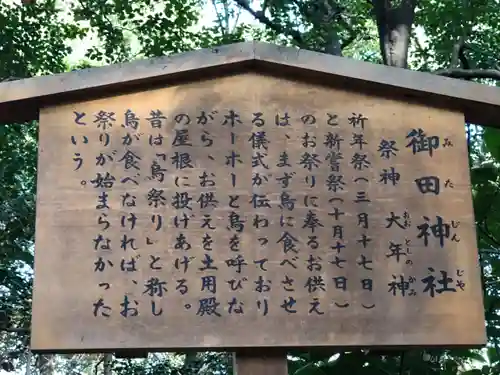 御田神社
みたじんじや
祭神　大年神
おおとしのかみ
祈年祭(三月十七日)
と新嘗祭(十月十七日)
のお祭りに奉るお供え
は、まず烏に食べさせ
る儀式が伝わっており
ホーホーと烏を呼びな
がら、お供えを土用殿
の屋根に投げあげる。
昔は「烏祭り」と称し
烏が食べなければ、お
祭りが始まらなかった
という。